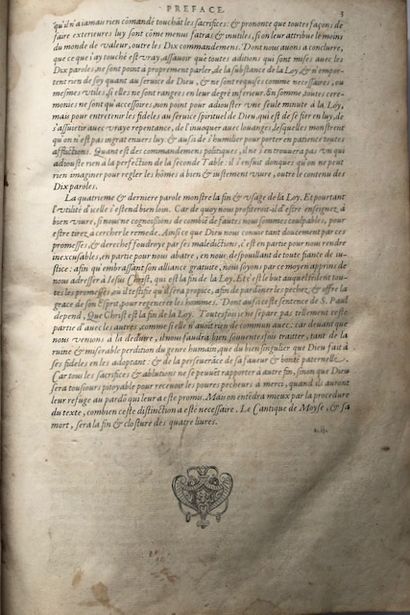 PREFACE 3
qu'il n'a iamais rien cōmādé touchāt les sacrifices: & prononce que toutes façons de
faire exterieures luy sont cōme menus fatras & inutiles, si on leur attribue le moins
du monde de valeur, outre les Dix commandemens. Dont nous auons a conclurre,
que ce que i'ay touché est vray, assauoir que toutes aditions qui sont mises auec les
Dix paroles, ne sont point à proprement parler, de la substance de la Loy, & n'empor-
tent rien de soy quant au seruice de Dieu, & ne sont requises comme necessaires, ou
mesmes vtiles, si elles ne sont rangees en leur degré inferieur. En somme, toutes cere-
monies ne sont qu'accessoires, non point pour adiouster vne seule minute à la Loy,
mau pour entretenir les fideles au seruice spirituel de Dieu, qui est de se fier en luy, de
s'assuietir auec vraye repentance, de l'inuoquer auec louanges, lesquelles monstrent
qu'on n'est pas ingrat enuers luy, & aussi de s'humilier pour porter en patience toutes
afflictions. Quant est des commandemens politiques, il ne s'en trouuera pas vn qui
adiouste rien à la perfection de la seconde Table: il s'ensuit donques qu'on ne peut
rien imaginer pour regler les hōmes à bien & iustement viure, outre le contenu des
Dix paroles.
La quatrieme & derniere parole monstre la fin & vsage de la Loy. Et pourtant
l'vtilité d'icelle s'estend bien loin. Car de quoy nous profiteroit-il d'estre enseignez à
bien viure, si nous ne cognoissions de combiē de fautes nous sommes coulpables, pour
estre tirez a cercher le remede. Ainsi ce que Dieu nous conuie tant doucement par ces
promesses, & derechef foudroye par ses maledictions, c'est en partie pour nous rendre
inexcusables, en partie pour nous abatre, en nous despouillant de toute fiance de iu-
stice: afin qu'embrassant son alliance gratuite, nous soyons par ce moyen apprins de
nous adresser à Iesus Christ, qui est la fin de la Loy. Et c'est le but auquel tēdent tou-
tes les promesses, où il testifie qu'il sera propice, afin de pardōner les pechez, & offre la
grace de son Esprit, pour regenerer les hommes. Dont aussi ceste sentence de S. Paul
depend, Que Christ est la fin de la Loy. Toutesfois ie ne separe pas tellement ceste
partie d'auec les autres, comme si elle n'auoit rien de commun auec: car deuant que
nous venions a la deduire, il nous faudra bien souuentesfois traitter, tant de la
ruine & miserable perdition du genre humain, que du bien singulier que Dieu fait à
ses fideles en les adoptant: & de la perseuerāce de sa faueur & bonté paternelle.
Car tous les sacrifices & ablutions ne se peuuēt rapporter à autre fin, sinon que Dieu
sera tousiours pitoyable pour receuoir les poures pecheurs a merci, quand ils auront
leur refuge au pardō qui leur a este promis. Mais on entēdra mieux par la procedure
du texte, combien ceste distinction a esté necessaire. Le Cantique de Moyse, & sa
mort, sera la fin & closture des quatre liures.